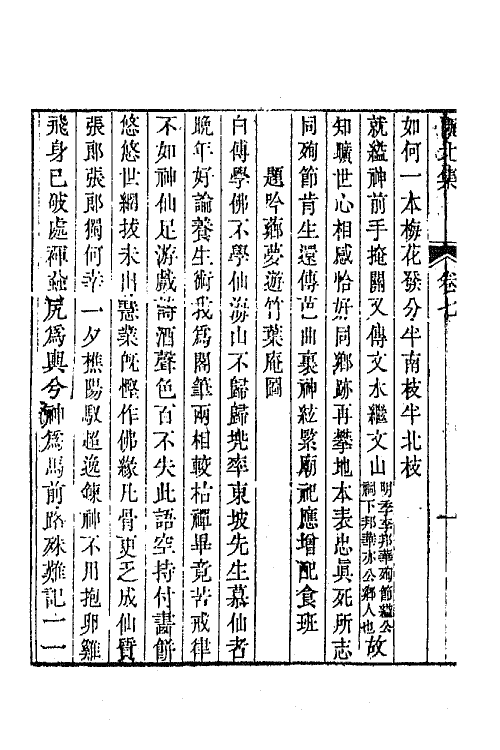 甌北集
卷七
一
如何一本梅花發分半南枝半北枝
就縊神前手掩關又傳文水繼文山明季李邦華殉節縊公祠下邦華亦公鄉人也故
知曠世心相感恰好同鄉跡再攀地本表忠眞死所志
同殉節肯生還傳芭曲裏神絃罷廟祀應增配食班
題吟薌夢遊竹葉庵圖
白傅學佛不學仙海山不歸歸兜率東坡先生慕仙者
晚年好論養生術我爲閣筆兩相較枯禪畢竟苦戒律
不如神仙足游戲詩酒聲色百不失此語空持付畫餅
悠悠世網拔未出慧業旣慳作佛緣凡骨更乏成仙質
張郎張郎獨何幸一夕樵陽馭超逸鍊神不用抱卵雞
飛身已破處禪蝨尻爲輿兮神爲馬前路殊難記一一